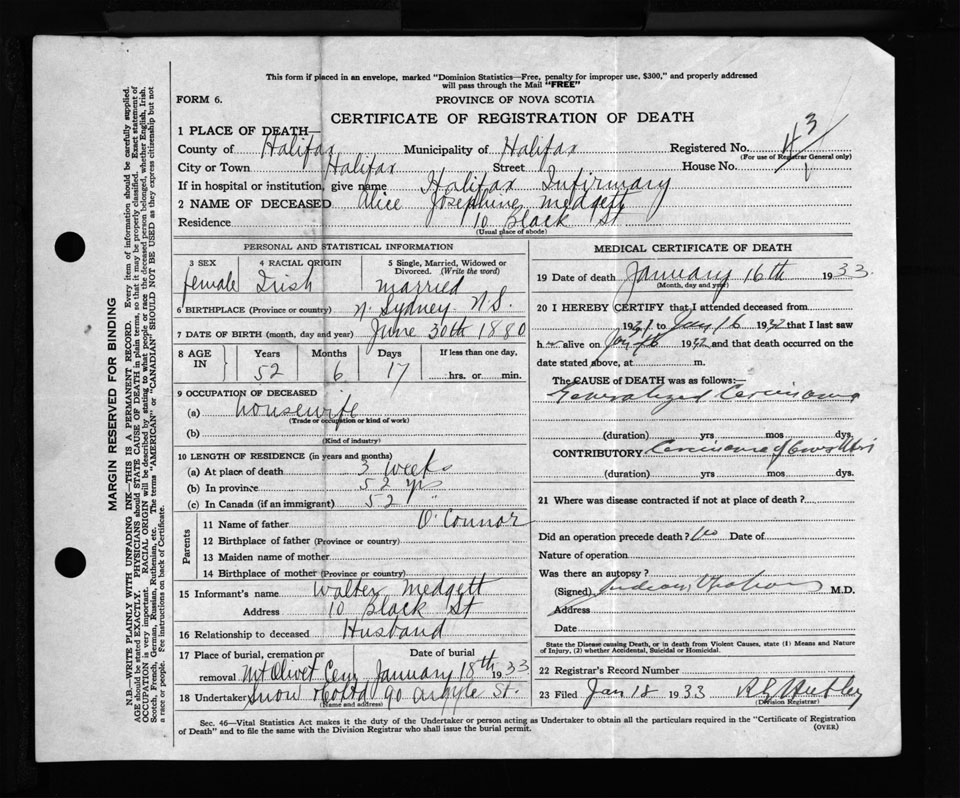 This form if placed in an envelope, marked "Dominion Statistics—Free, penalty for improper use, $300," and properly addressed
will pass through the Mail "FREE"
FORM 6.
PROVINCE OF NOVA SCOTIA
CERTIFICATE OF REGISTRATION OF DEATH
1 PLACE OF DEATH—
County of Halifax Municipality of Halifax Registered No. 43
(For use of Registrar General only)
City or Town Halifax Street House No.
If in hospital or institution, give name Halifax Infirmary
2 NAME OF DECEASED Alice Josephine Medgett
Residence 10 Black St
(Usual place of abode)
PERSONAL AND STATISTICAL INFORMATION
3 SEX 4 RACIAL ORIGIN 5 Single, Married, Widowed or Divorced. (Write the word)
female Irish married
6 BIRTHPLACE (Province or country) N. Sydney N.S.
7 DATE OF BIRTH (month, day and year) June 30th 1880
8 AGE IN Years Months Days If less than one day.
52 6 17 hrs. or min.
9 OCCUPATION OF DECEASED
(a) housewife
(Trade or occupation or kind of work)
(b)
(Kind of industry)
10 LENGTH OF RESIDENCE (in years and months)
(a) At place of death 3 weeks
(b) In province 52 yrs
(c) In Canada (if an immigrant) 52 "
Parents
11 Name of father O'Connor
12 Birthplace of father (Province or country)
13 Maiden name of mother
14 Birthplace of mother (Province or country)
15 Informant's name Walter Medgett
Address 10 Black St
16 Relationship to deceased Husband
17 Place of burial, cremation or removal Date of burial
Mt Olivet Cem January 18th 1933
18 Undertaker Snow & Co Ltd 90 Argyle St.
(Name and address)
MEDICAL CERTIFICATE OF DEATH
19 Date of death January 16th 1933.
(Month, day and year)
20 I HEREBY CERTIFY that I attended deceased from
to Jan 16 1932 that I last saw
h alive on Jan 16 1932 and that death occurred on the
date stated above, at m.
The CAUSE OF DEATH was as follows:—
Generalized Carcinoma
(duration) yrs mos dys.
CONTRIBUTORY Carcinoma of
(duration) yrs mos dys.
21 Where was disease contracted if not at place of death?
Did an operation precede death? No Date of
Nature of operation
Was there an autopsy?
(Signed) M.D.
Address
Date
State the Disease causing Death, or in death from Violent Causes, state (1) Means and Nature
of Injury, (2) whether Accidental, Suicidal or Homicidal.
22 Registrar's Record Number
23 Filed Jan 18 1933
(Division Registrar)
Sec. 46—Vital Statistics Act makes it the duty of the Undertaker or person acting as Undertaker to obtain all the particulars required in the "Certificate of Registration
of Death" and to file the same with the Division Registrar who shall issue the burial permit.
(OVER)
MARGIN RESERVED FOR BINDING
N.B.—WRITE PLAINLY WITH UNFADING INK—THIS IS A PERMANENT RECORD. Every item of information should be carefully supplied.
AGE should be stated EXACTLY. PHYSICIANS should STATE CAUSE OF DEATH in plain terms, so that it may be properly classified. Exact statement of
OCCUPATION is very important. RACIAL ORIGIN will be described by stating to what people or race the deceased person belonged, whether English, Irish,
Scotch, French, German, Russian, Ruthenian, etc. The terms "AMERICAN" or "CANADIAN" SHOULD NOT BE USED as they express citizenship but not
a race or people. Fee instructions on back of Certificate.